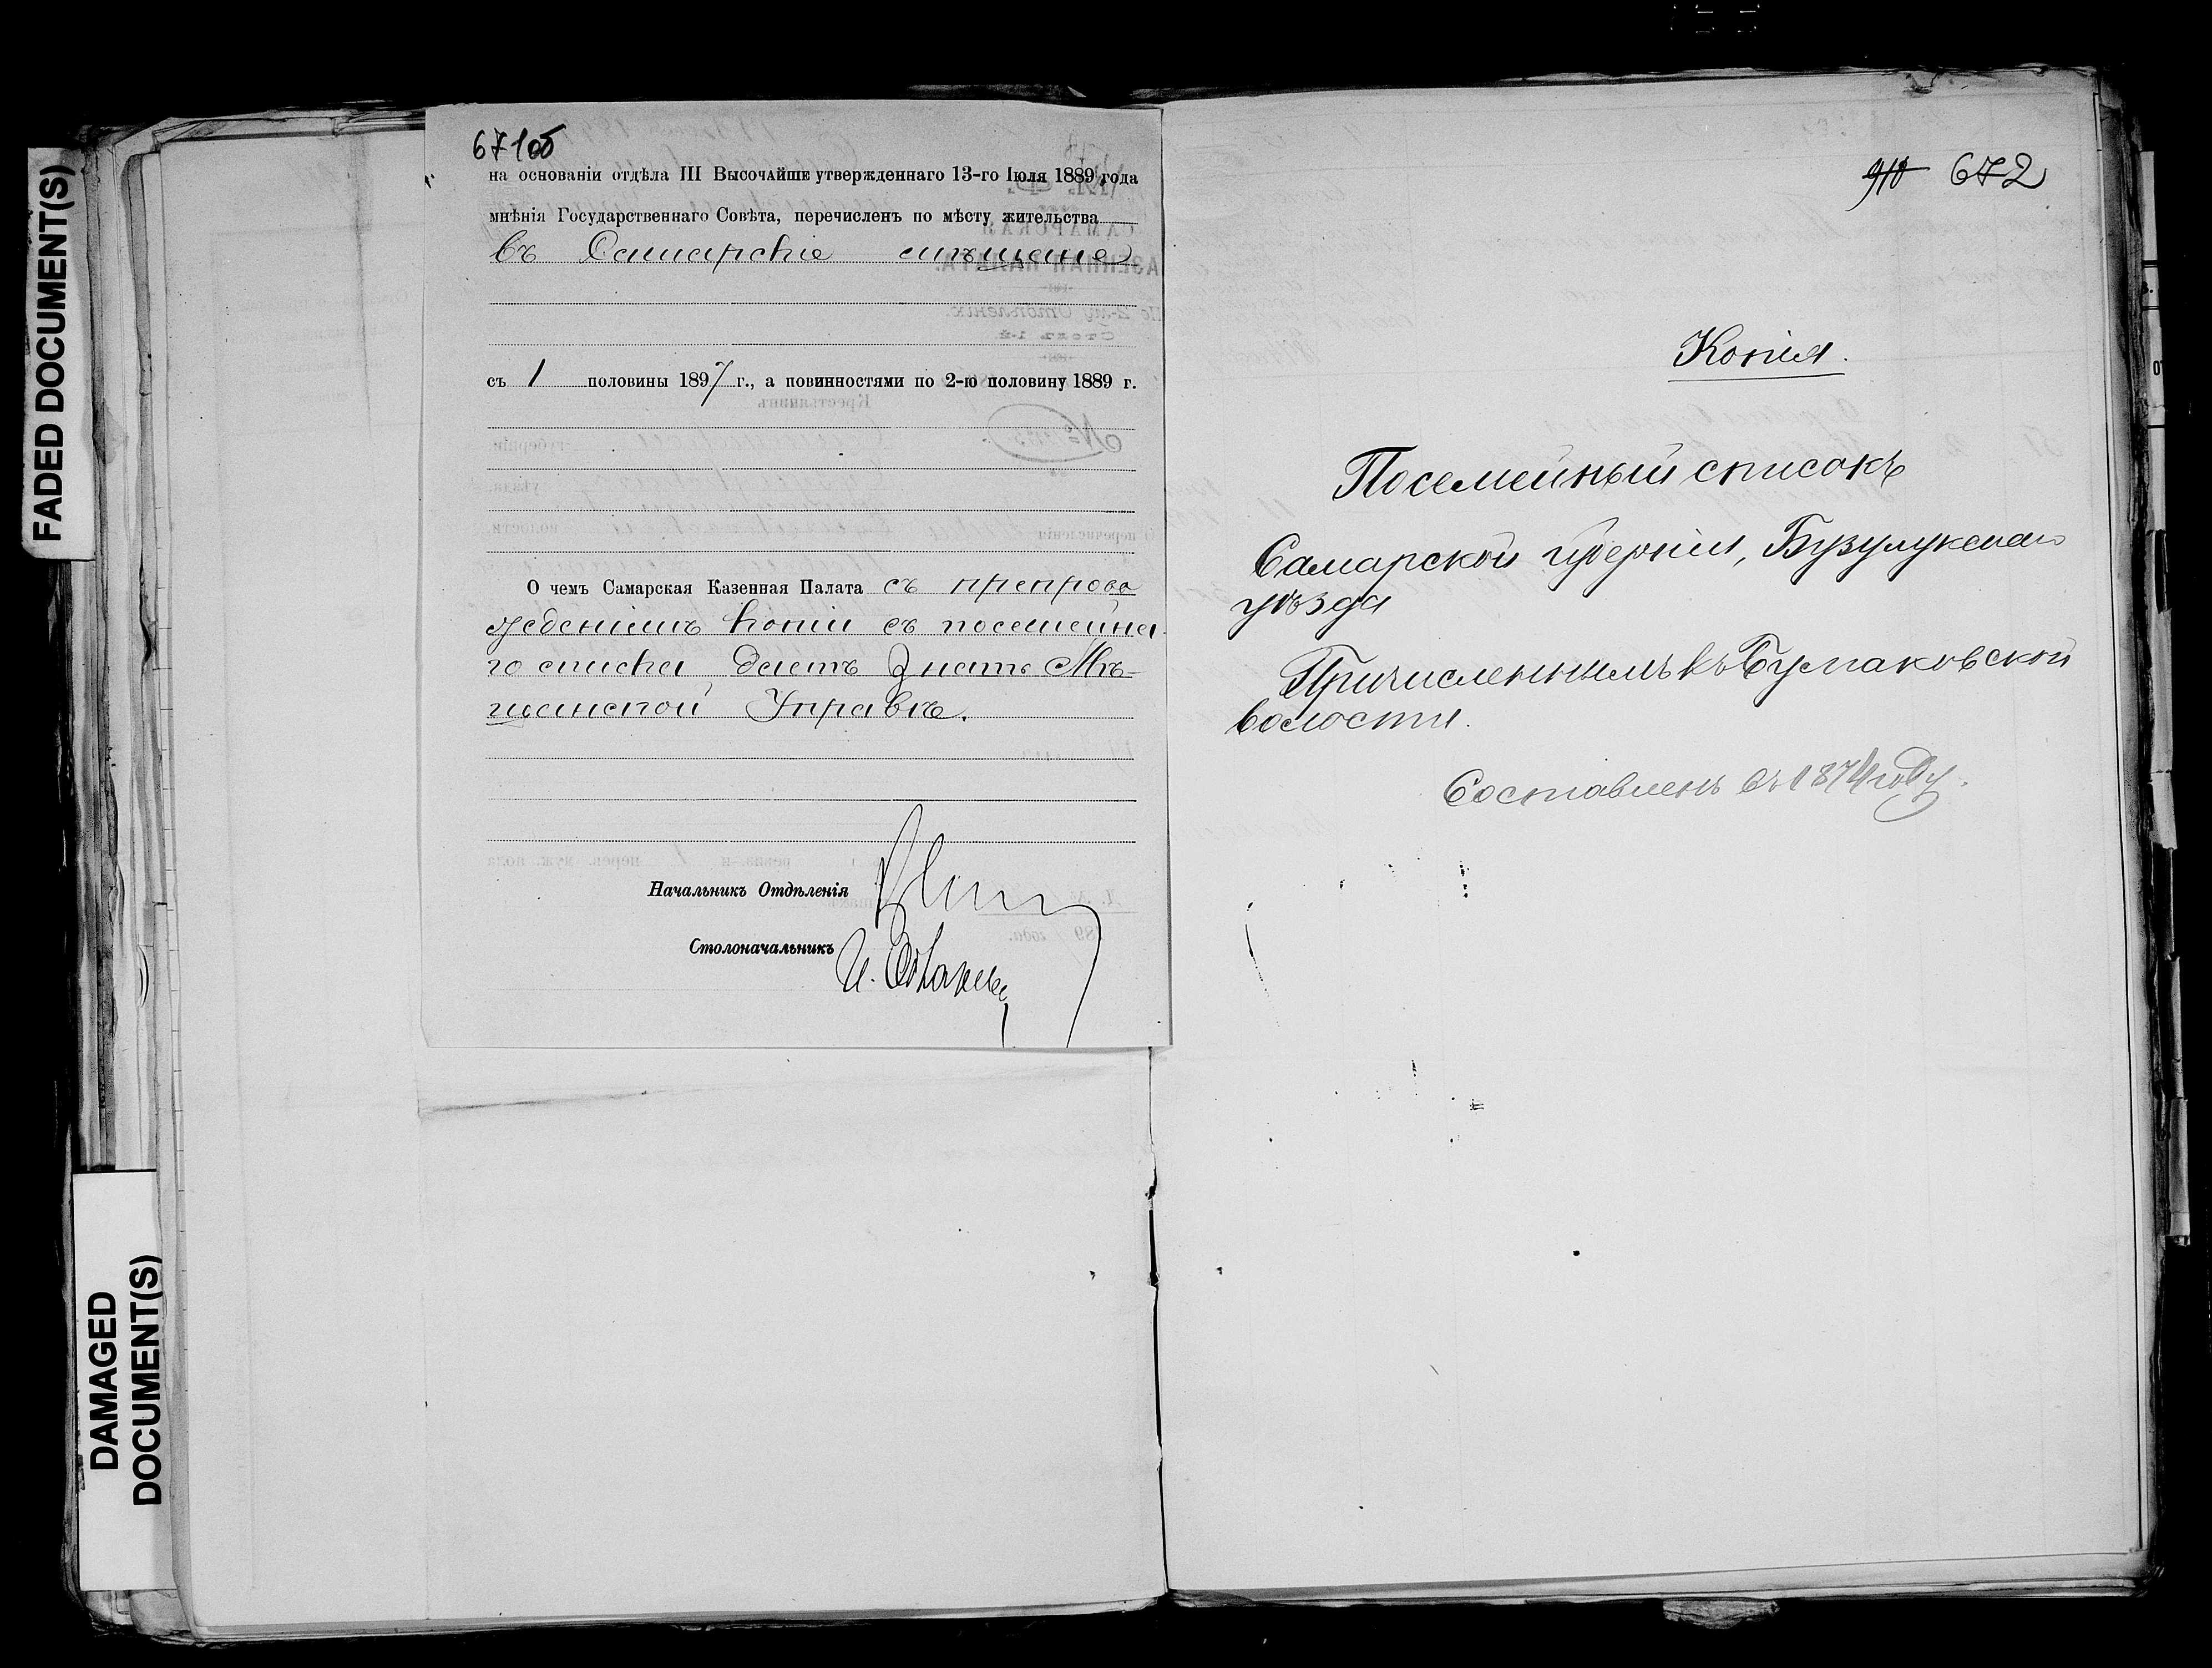 FADED DOCUMENT(S)
DAMAGED
DOCUMENT(S)
671об
на основаніи отдѣла III Высочайше утвержденнаго 13-го Іюля 1889 года
мнѣнія Государственнаго Совѣта, перечисленъ по мѣсту жительства
въ Самарскіе мѣщане
съ 1 половины 1897 г., а повинностями по 2-ю половину 1889 г.
О чемъ Самарская Казенная Палата съ препрово
жденіемъ копіи съ посемейна
го списка даетъ знать Мѣ-
щанской Управѣ.
Начальникъ Отдѣленія
Столоначальникъ
910 672
Копія.
Посемейный списокъ
Самарской губерніи, Бузулукскаго
уѣзда
Причисленнымъ къ
волости.
Составленъ въ 1874 году.